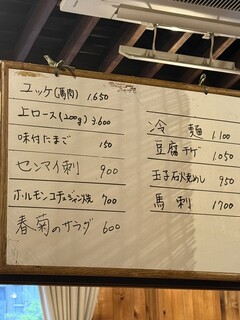 ユッケ(馬肉) 1.650
上ロース(200g) 3.600
味付たまご 150
センマイ刺 900
ホルモンコチュジャン焼 700
春菊のサラダ 600
冷麺 1.100
豆腐チゲ 1050
玉子石焼めし 950
馬刺 1700